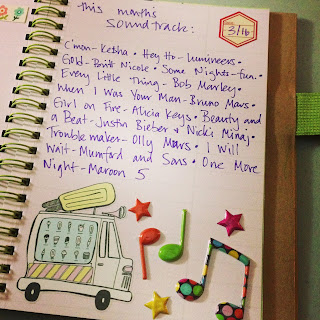 This month's
soundtrack:
3/16
C'mon-Kesha • Hey Ho-Lumineers •
Gold-Britt Nicole • Some Nights-fun. •
Every Little Thing-Bob Marley •
When I Was Your Man-Bruno Mars •
Girl on Fire-Alicia Keys • Beauty and
a Beat-Justin Bieber & Nicki Minaj •
Troublemaker-Olly Mars • I Will
Wait-Mumford and Sons • One More
Night-Maroon 5